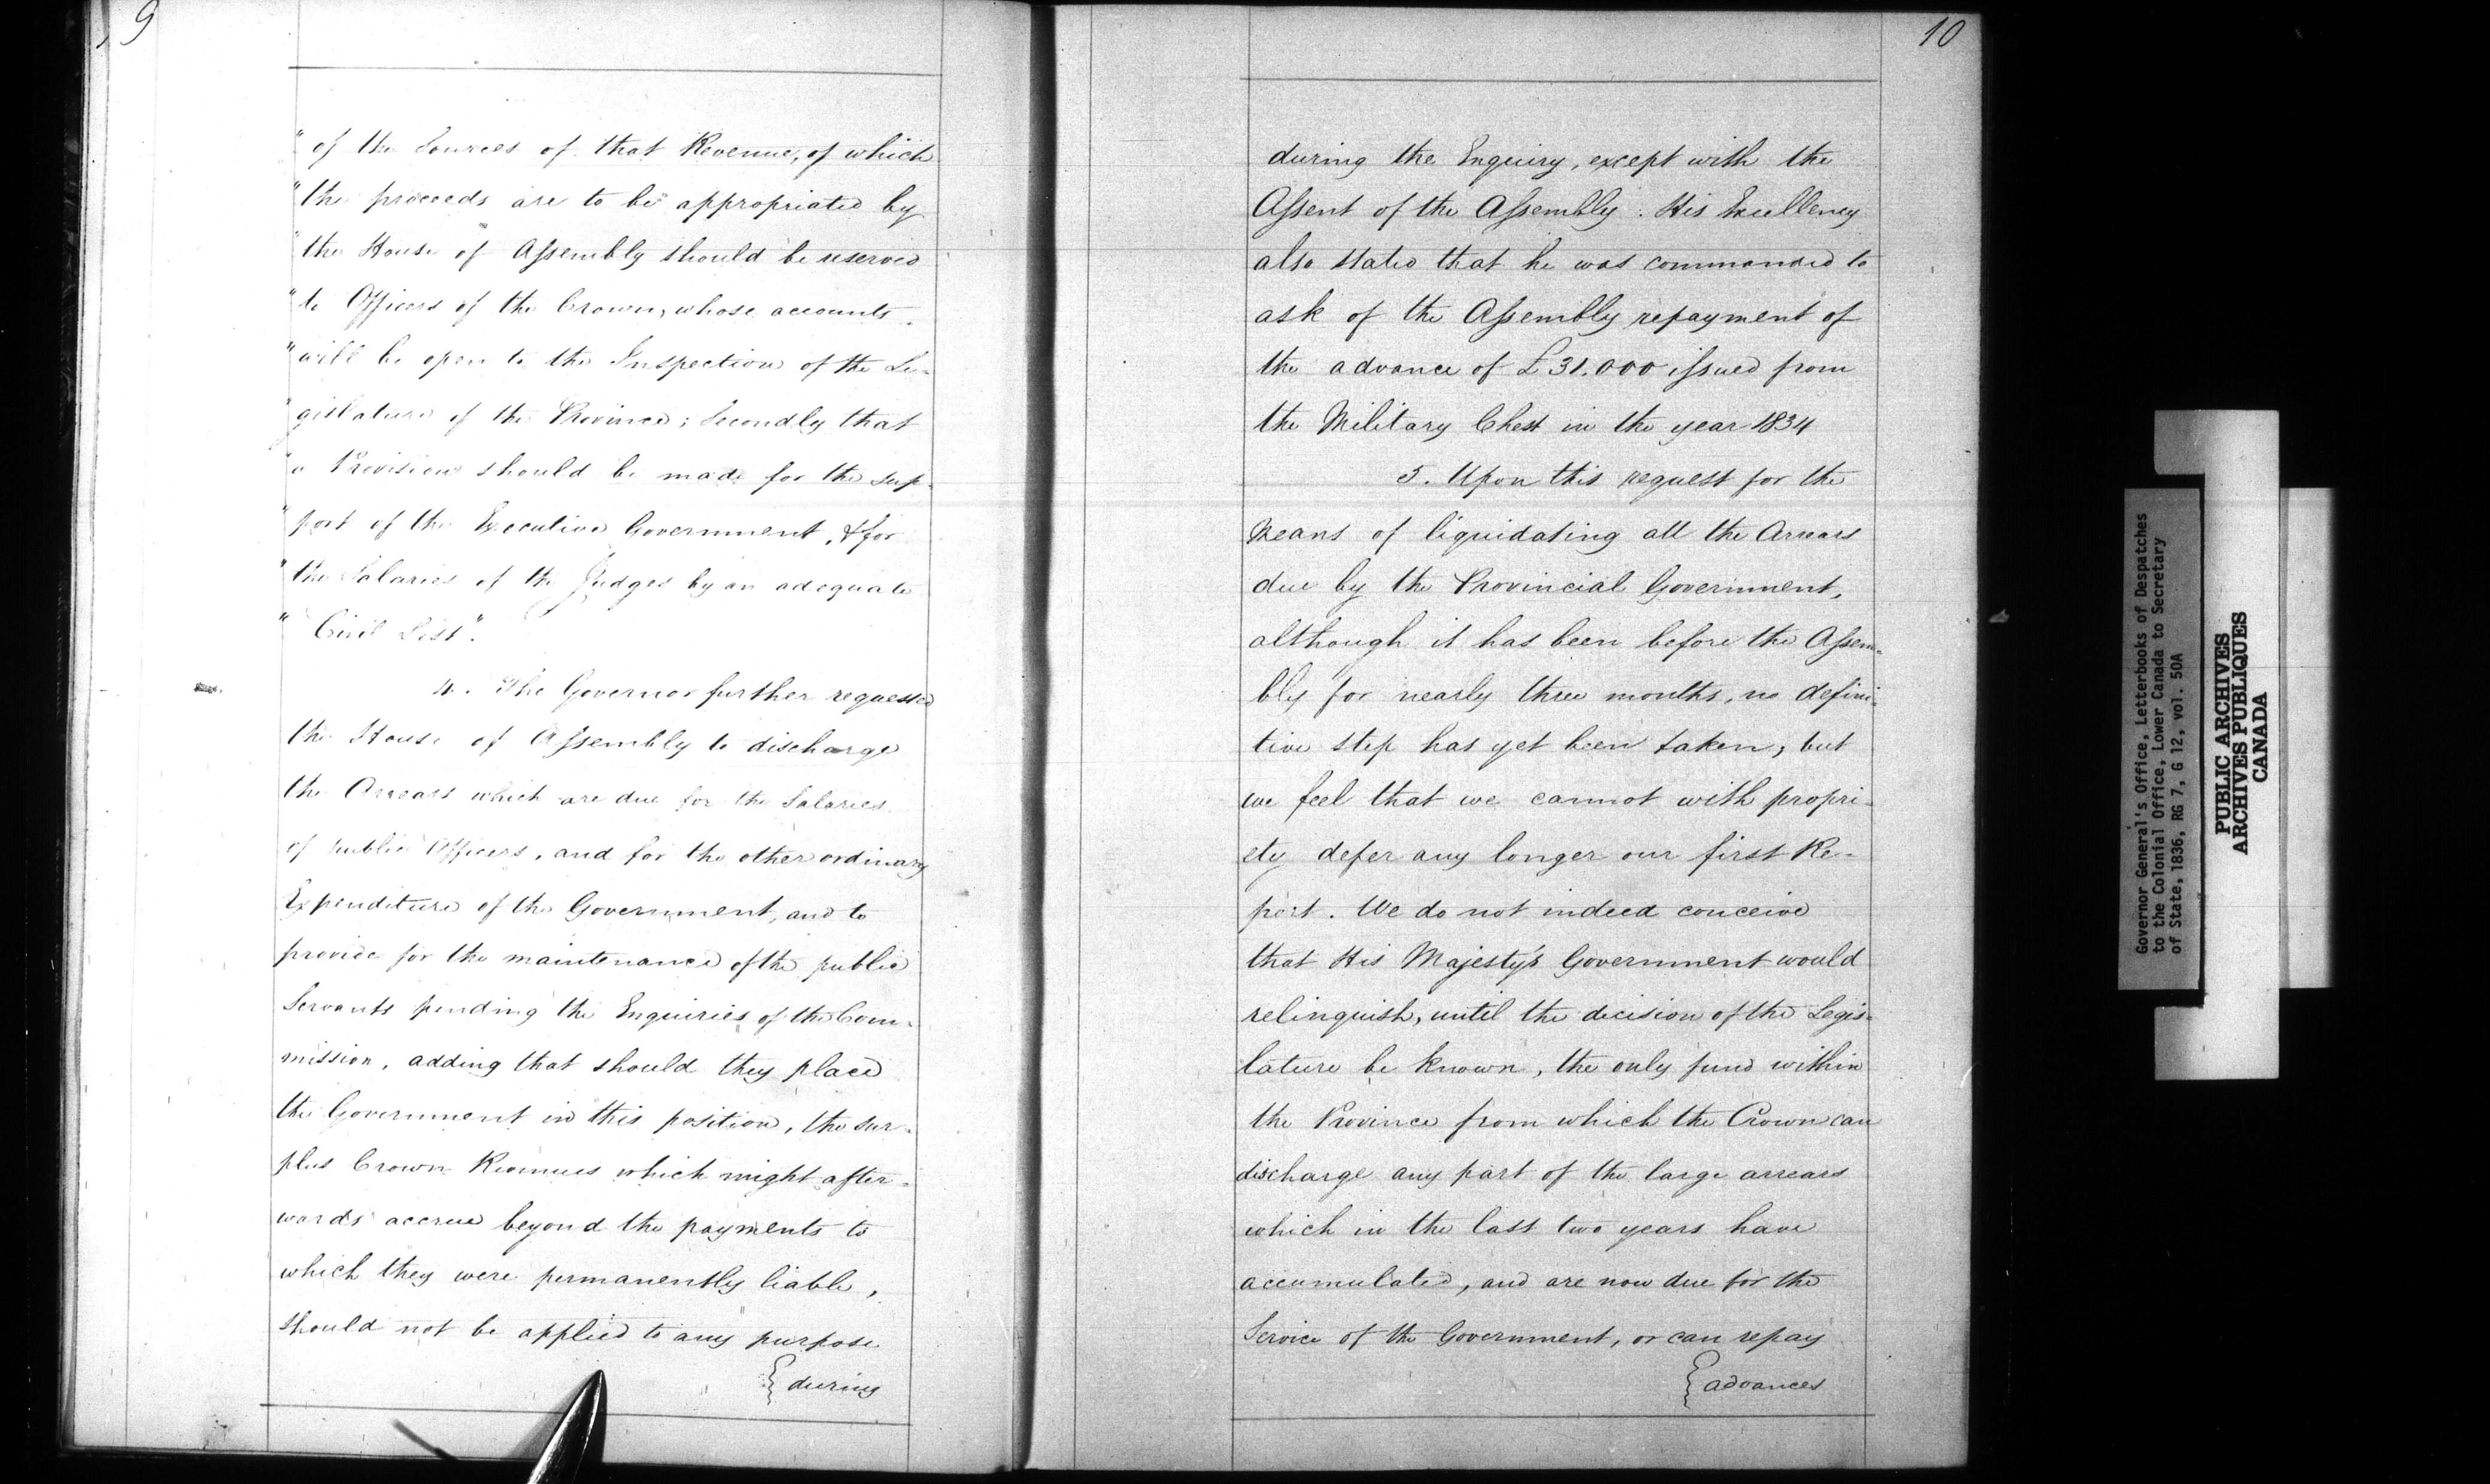 9
" of the Sources of that Revenue, of which
" the proceeds are to be appropriated by
" the House of Assembly should be reserved
" to Officers of the Crown, whose accounts
" will be open to the Inspection of the Le-
" gislature of the Province; Secondly that
" a Provision should be made for the sup-
" port of the Executive Government, & for
" the Salaries of the Judges by an adequate
" Civil List".
4. The Governor further requested
the House of Assembly to discharge
the Arrears which are due for the Salaries
of public Officers, and for the other ordinary
Expenditure of the Government, and to
provide for the maintenance of the public
Servants pending the Enquiries of the Com-
mission, adding that should they place
the Government in this position, the sur-
plus Crown Revenues which might after-
wards accrue beyond the payments to
which they were permanently liable,
should not be applied to any purpose
during
10
during the Enquiry, except with the
Assent of the Assembly. His Excellency
also stated that he was commanded to
ask of the Assembly repayment of
the advance of £31.000 issued from
the Military Chest in the year 1834
5. Upon this request for the
Means of liquidating all the Arrears
due by the Provincial Government,
although it has been before the Assem-
bly for nearly three months, no defini-
tive step has yet been taken, but
we feel that we cannot with propri-
ety defer any longer our first Re-
port. We do not indeed conceive
that His Majesty's Government would
relinquish, until the decision of the Legis-
lature be known, the only fund within
the Province from which the Crown can
discharge any part of the large arrears
which in the last two years have
accumulated, and are now due for the
Service of the Government, or can repay
advances
Governor General's Office, Letterbooks of Despatches
to the Colonial Office, Lower Canada to Secretary
of State, 1836, RG 7, G 12, vol. 50A
PUBLIC ARCHIVES
ARCHIVES PUBLIQUES
CANADA